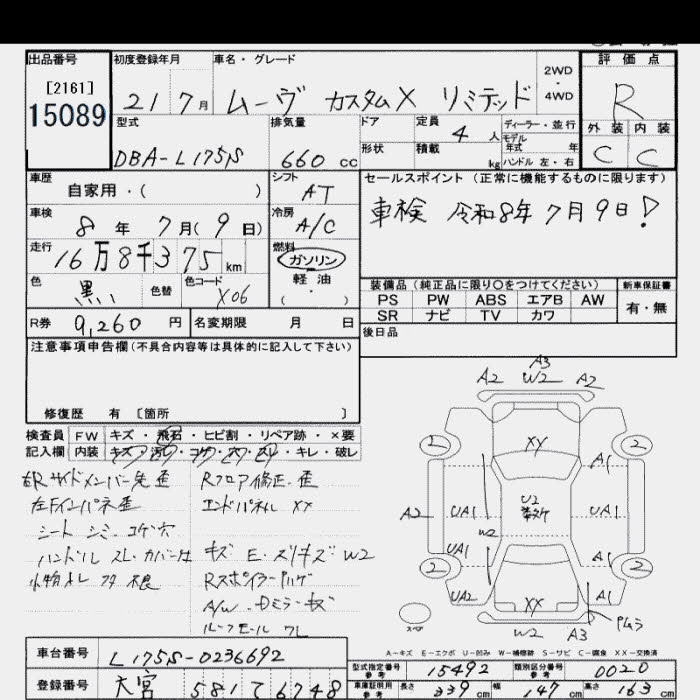 出品番号
[2161]
15089
初度登録年月
21 7 月
車名・グレード
ムーヴ カスタムX リミテッド
2WD
4WD
評価点
R
外装 内装
C C
型式
DBA-L175S
排気量
660 cc
ドア
形状
定員
4 人
積載
kg
ディーラー・並行
モデル
年式 年
ハンドル 左・右
車歴
自家用・( )
シフト
AT
セールスポイント (正常に機能するものに限ります)
車検 令和8年7月9日!
車検
8 年 7 月(9 日)
冷房
A/C
走行
16万8千375 km
燃料
ガソリン
軽油
( ・ )
色
黒い
色替
色コード
X06
装備品 (純正品に限り○をつけてください)
新車保証書
PS PW ABS エアB AW
SR ナビ TV カワ
有・無
R券 9,260 円
名変期限 月 日
後日品
注意事項申告欄 (不具合内容等は具体的に記入して下さい)
修復歴 有 [箇所 ]
検査員
記入欄
FW キズ・飛石・ヒビ割・リペア跡・×要
内装 キズ・汚レ・コゲ・穴・スレ・キレ・破レ
右Rサイドメンバー先歪 Rフロア修正・歪
左Fインパネ歪 エンドパネル XX
シート シミ・コゲ穴
ハンドル スレ・カバー付 キズ E・スリキズ W2
小物入レ フタ 不良
Rスポイラーハゲ
A/W・Dミラーキズ
ルーフモール ワレ
A3
A2 W2 A2
2 XY 2
A1
A2 UA1 U2 UA1
W2
UA1 A1
2 2
UA2 XX A1
W2 A3
スペア
A-キズ E-エクボ U-凹み W-補修跡 S-サビ C-腐食 XX-交換済
車台番号 L175S-0236692
型式指定番号
参考
15492
類別区分番号
参考
0020
登録番号 大宮 581 て 6748
車庫証明用
参考
長さ 339 cm 幅 147 cm 高さ 163 cm